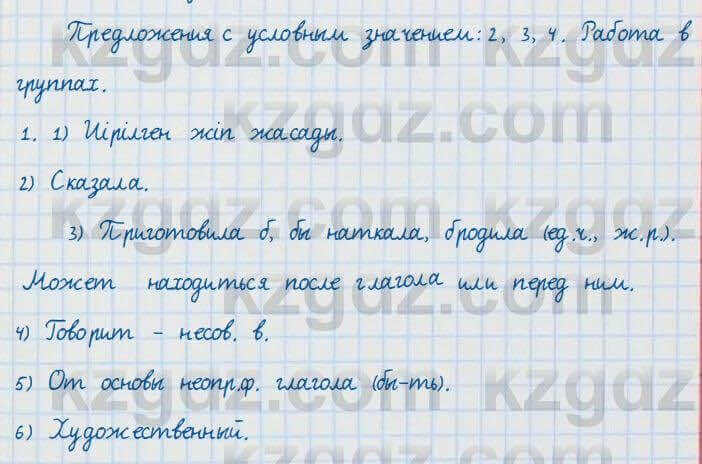 Предложения с условным значением: 2, 3, 4. Работа в
группах.
1. 1) Иірілген жіп жасады.
2) Сказала.
3) Приготовила б, бы наткала, бродила (ед.ч., ж.р.).
Может находиться после глагола или перед ним.
4) Говорит - несов. в.
5) От основы неопр.ф. глагола (бы-ть).
6) Художественный.
kzgdz.com